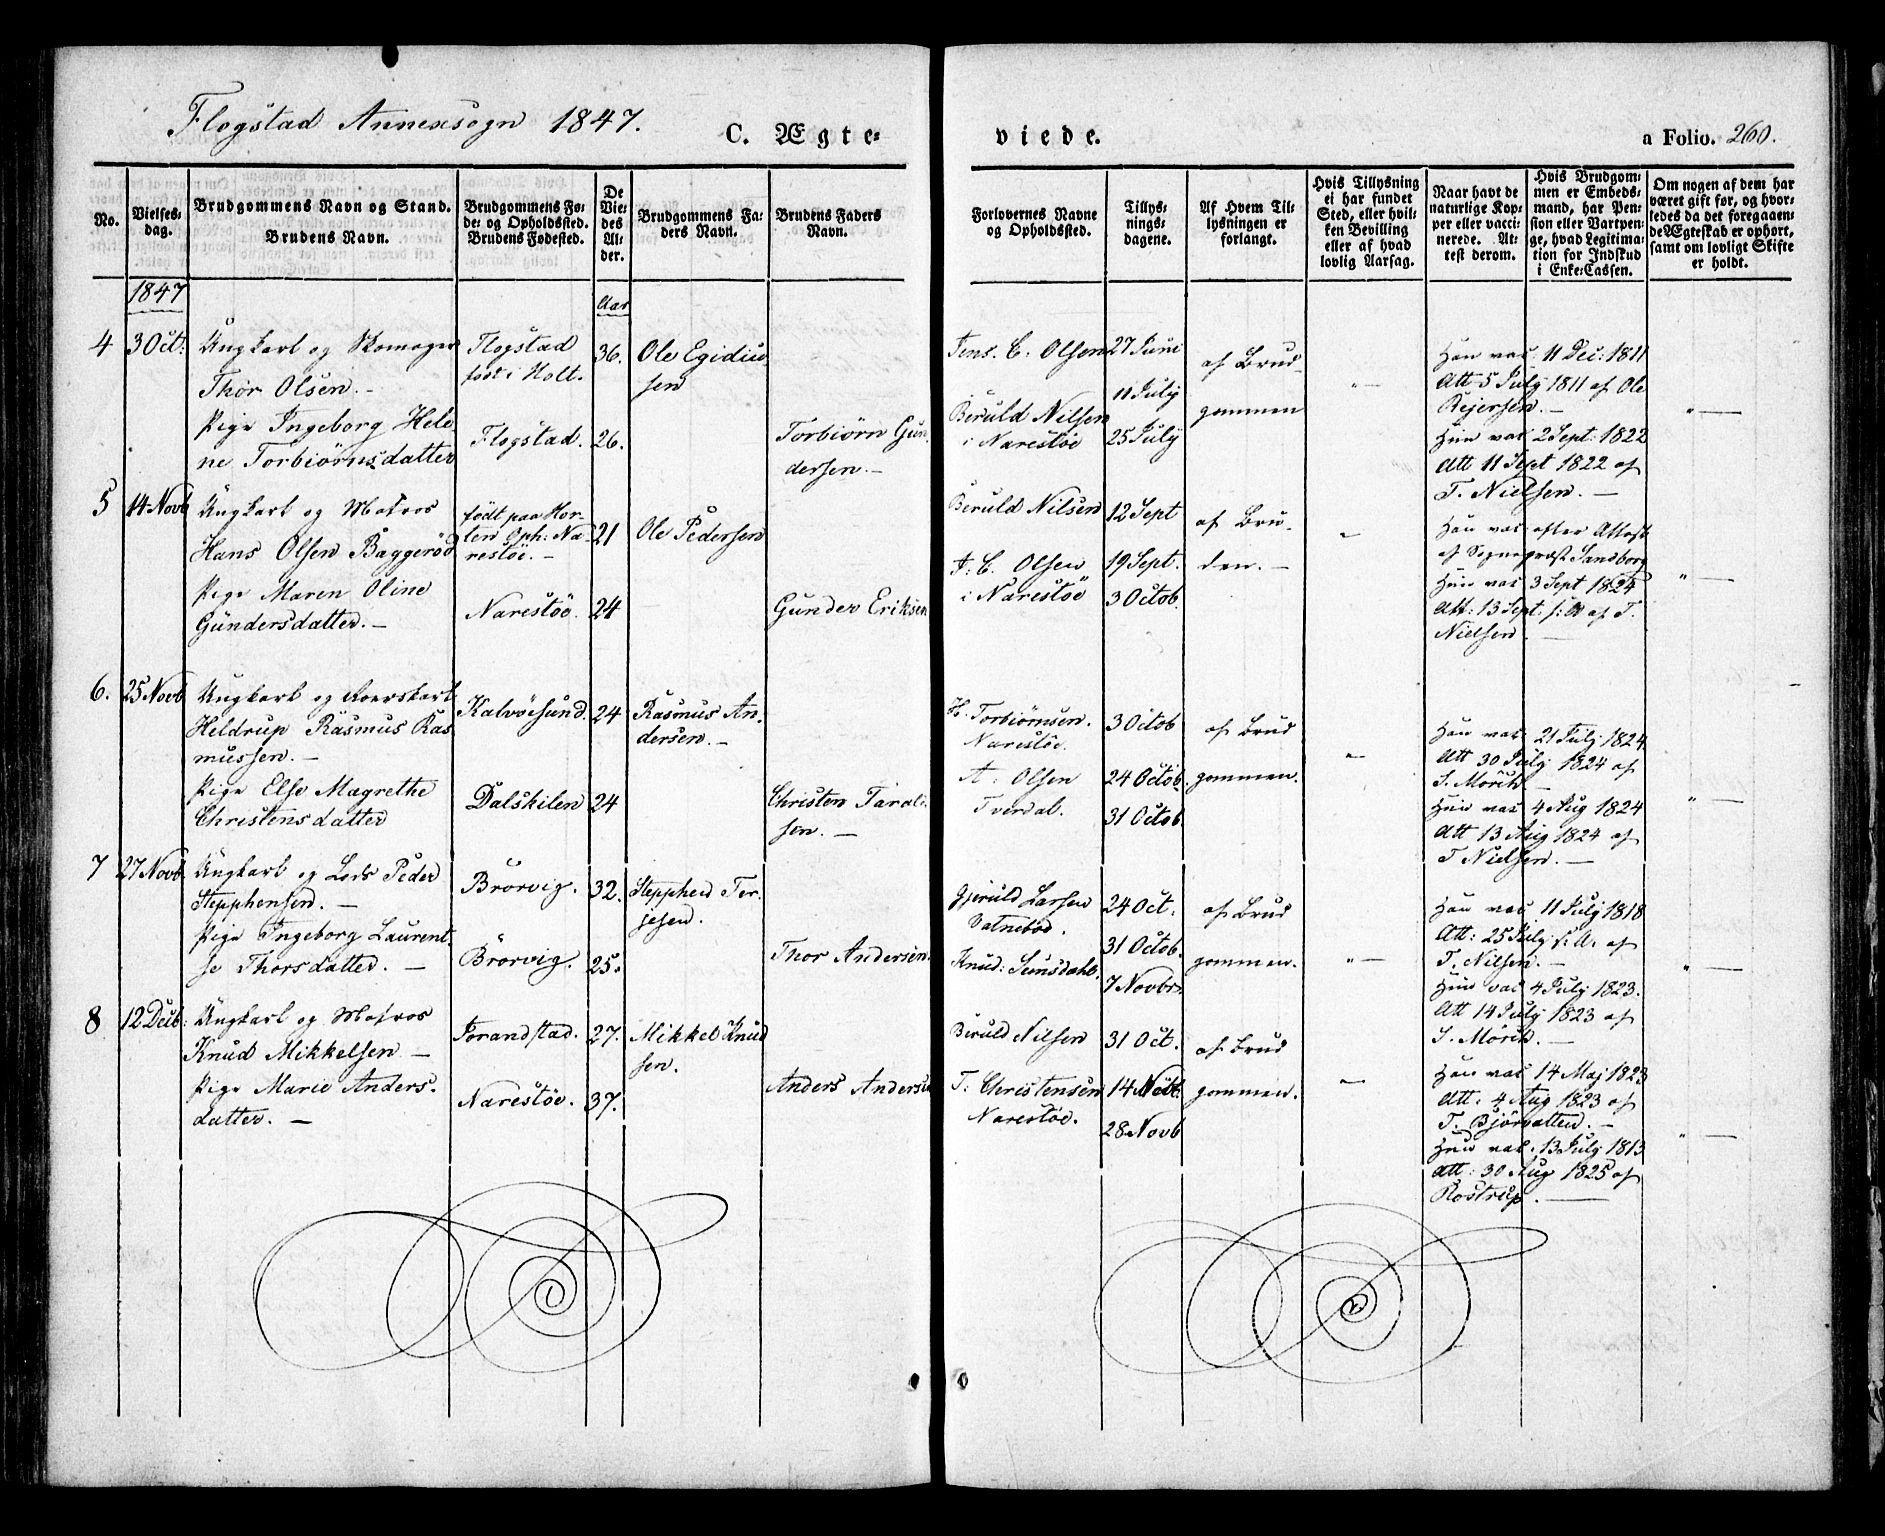 Flogstad Annexsogn 1847.
C. Ægte=
viede.
a Folio. 260.
No.
Vielses-
dag.
Brudgommens Navn og Stand.
Brudens Navn.
Brudgommens Fø-
de- og Opholdssted.
Brudens Fødested.
De
Vie-
des
Al-
der.
Brudgommens Fa-
ders Navn.
Brudens Faders
Navn.
Forlovernes Navne
og Opholdssted.
Tillys-
nings-
dagene.
Af Hvem Til-
lysningen er
forlangt.
Hvis Tillysning
ei har fundet
Sted, eller hvil-
ken Bevilling
eller af hvad
lovlig Aarsag.
Naar havt de
naturlige Kop-
per eller vacci-
nerede. At-
test derom.
Hvis Brudgom-
men er Embeds-
mand, har Pen-
sion eller Vartpen-
ge, hvad Legitima-
tion for Indskud
i Enke-Cassen.
Om nogen af dem har
været gift før, og hvor-
ledes da det foregaaen-
de Ægteskab er ophørt,
samt om lovligt Skifte
er holdt.
1847
Aar
4
3 Oct.
Ungkarl og Skomager
Thor Olsen. -
Pige Ingeborg Hele
ne Torbiörnsdatter
Flogstad
født i Holt.
Flogstad.
36.
26.
Ole Egidiu
sen
Torbiörn Gun
dersen. -
Jens. C. Olsen
Beruld Nilsen
i Narestöe
27 Juni
11 July
25 July
af Brud
gommen
" -
Han vac. 11 Dec: 1811
Att 5 July 1811 af Ole
Rejersen. -
Hun vac 2 Sept: 1822
Att 11 Sept 1822 af
T. Nielsen. -
" -
5
14 Novb
Ungkarl og Matros
Hans Olsen Baggeröd
Pige Maren Oline
Gundersdatter. -
født paa Hor-
ten Oph: Na-
restöe. -
Narestöe.
21
24
Ole Pedersen
Gunder Eriksen
Beruld Nilsen
J: C. Olsen
i Narestöe
12 Sept
19 Sept.
3 Octob.
af Bru-
den. -
Han vac efter Attest
af Sognepræst Sandborg
Hun vac 3 Sept 1824
Att: 13 Sept. s: A af T.
Nielsen -
" -
6.
25 Novb
Ungkarl og
Heldrup Rasmus Ras
mussen. -
Pige Else Magrethe
Christensdatter
Kalvöesund.
Dalskilen
24
24
Rasmus An-
dersen. -
Christen Taral
sen. -
H. Torbiörnsen.
Narestöe.
A: Olsen
Tverdal.
3 Octob
24 Octob.
31 Octob.
af Brud
gommen.
" -
Han vac 21 July 1824
Att 30 July 1824 af
S. Mörch -
Hun vac 4 Aug 1824
Att 13 Aug 1824 af
T Nielsen. -
" -
7
27 Novb.
Ungkarl og Lods Peder
Stepphensen. -
Pige Ingeborg Laurent-
se Thorsdatter. -
Brörvig.
Brörvig.
32.
25.
Stepphen Ter-
jesen.
Thor Andersen.
Gjeruld Larsen
Knud:
24 Oct.
31 Octob.
7 Novbr.
af Brud
gommen.
" -
Han vac 11 July 1818
Att: 25 July s: A. af
T. Nilsen -
Hun vac 4 July 1823.
Att 14 July 1823 af
S. Mörch. -
" -
8
12 Decb.
Ungkarl og Matros
Knud Mikkelsen -
Pige Marie Anders-
datter. -
Torandstad.
Narestöe.
27.
37.
Mikkel Knud
sen.
Anders Andersen
Beruld Nilsen
T: Christensen
Narestöe.
31 Oct.
14 Novb.
28 Novb
af Brud
gommen.
" -
Han vac 14 Maj 1823
Att: 4 Aug 1823 af
T. Björvatten. -
Hun vac. 13 July 1813
Att: 30 Aug 1825 af
Rostrup. -
" -